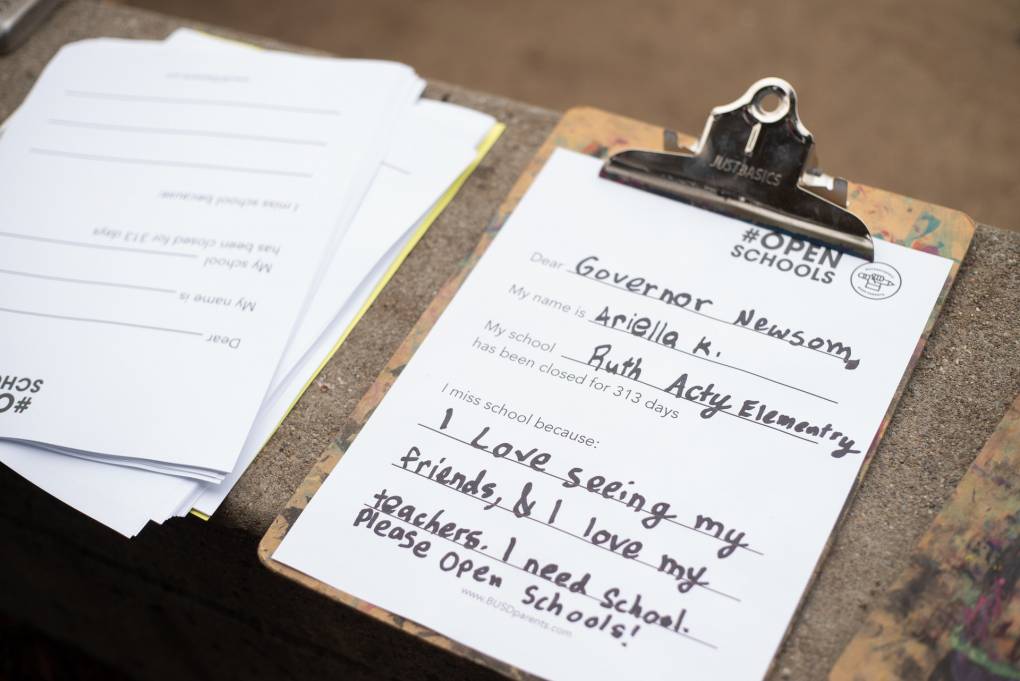 JUSTBASICS
#OPEN
SCHOOLS
Dear Governor Newsom,
My name is Ariella K.
My school Ruth Acty Elementry
has been closed for 313 days
I miss school because:
I Love seeing my
friends, & I love my
teachers. I need School.
please Open Schools!
www.BUSDparents.com
I miss school because:
My school
has been closed for 313 days
My name is
Dear
#O
SCHO